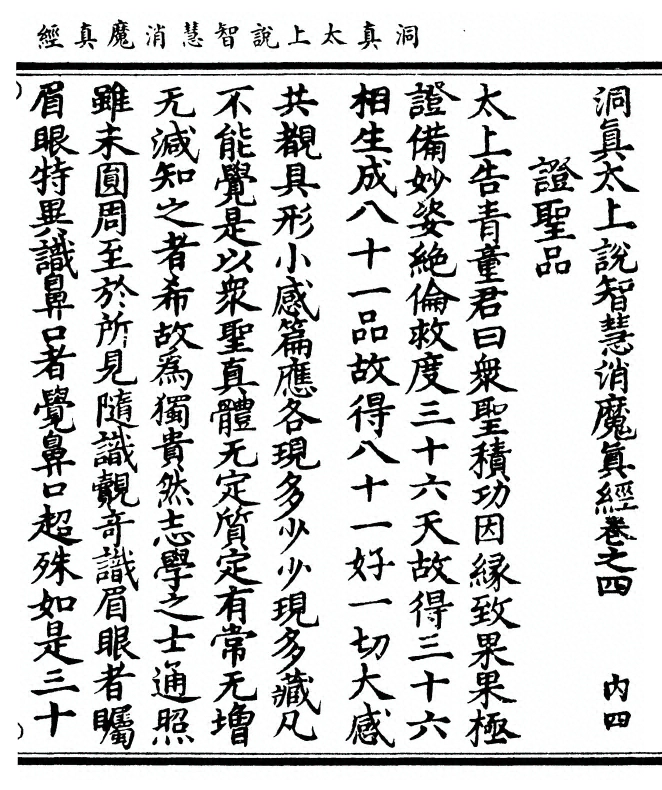 洞真太上說智慧消魔真經
洞真太上說智慧消魔真經卷之四 內四
證聖品
太上告青童君曰衆聖積功因緣致果果極
證備妙姿絶倫救度三十六天故得三十六
相生成八十一品故得八十一好一切大感
共覩具形小感篇應各現多少少現多藏凡
不能覺是以衆聖真體无定質定有常无增
无減知之者希故為獨貴然志學之士通照
雖未圓周至於所見隨識覩奇識眉眼者矚
眉眼特異識鼻口者覺鼻口超殊如是三十